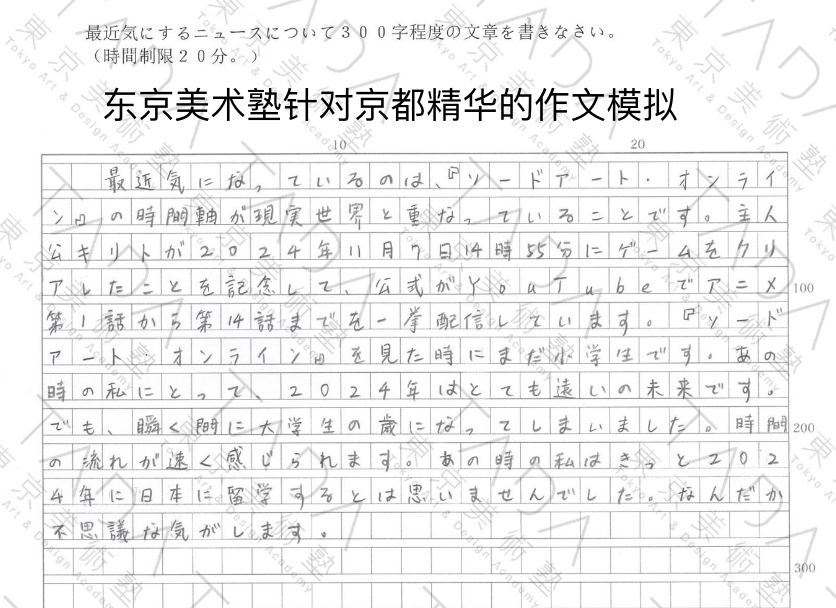 最近気にするニュースについて300字程度の文章を書きなさい。
（時間制限20分。）
东京美术塾针对京都精华的作文模拟
10 20
最近気になっているのは、『ソードアート・オンライ
ン』の時間軸が現実世界と重なっていることです。主人
公キリトが2024年11月7日14時55分にゲームをクリ
アしたことを記念して、公式がYouTubeでアニメ
100
第1話から第14話までを一挙配信しています。『ソード
アート・オンライン』を見た時にまだ小学生です。あの
時の私にとって、2024年はとても遠いの未来です。
でも、瞬く間に大学生の歳になってしまいました。時間
200
の流れが速く感じられます。あの時の私はきっと202
4年に日本に留学するとは思いませんでした。なんだか
不思議な気がします。
300
東京美術塾
Tokyo Art & Design Academy
TADA